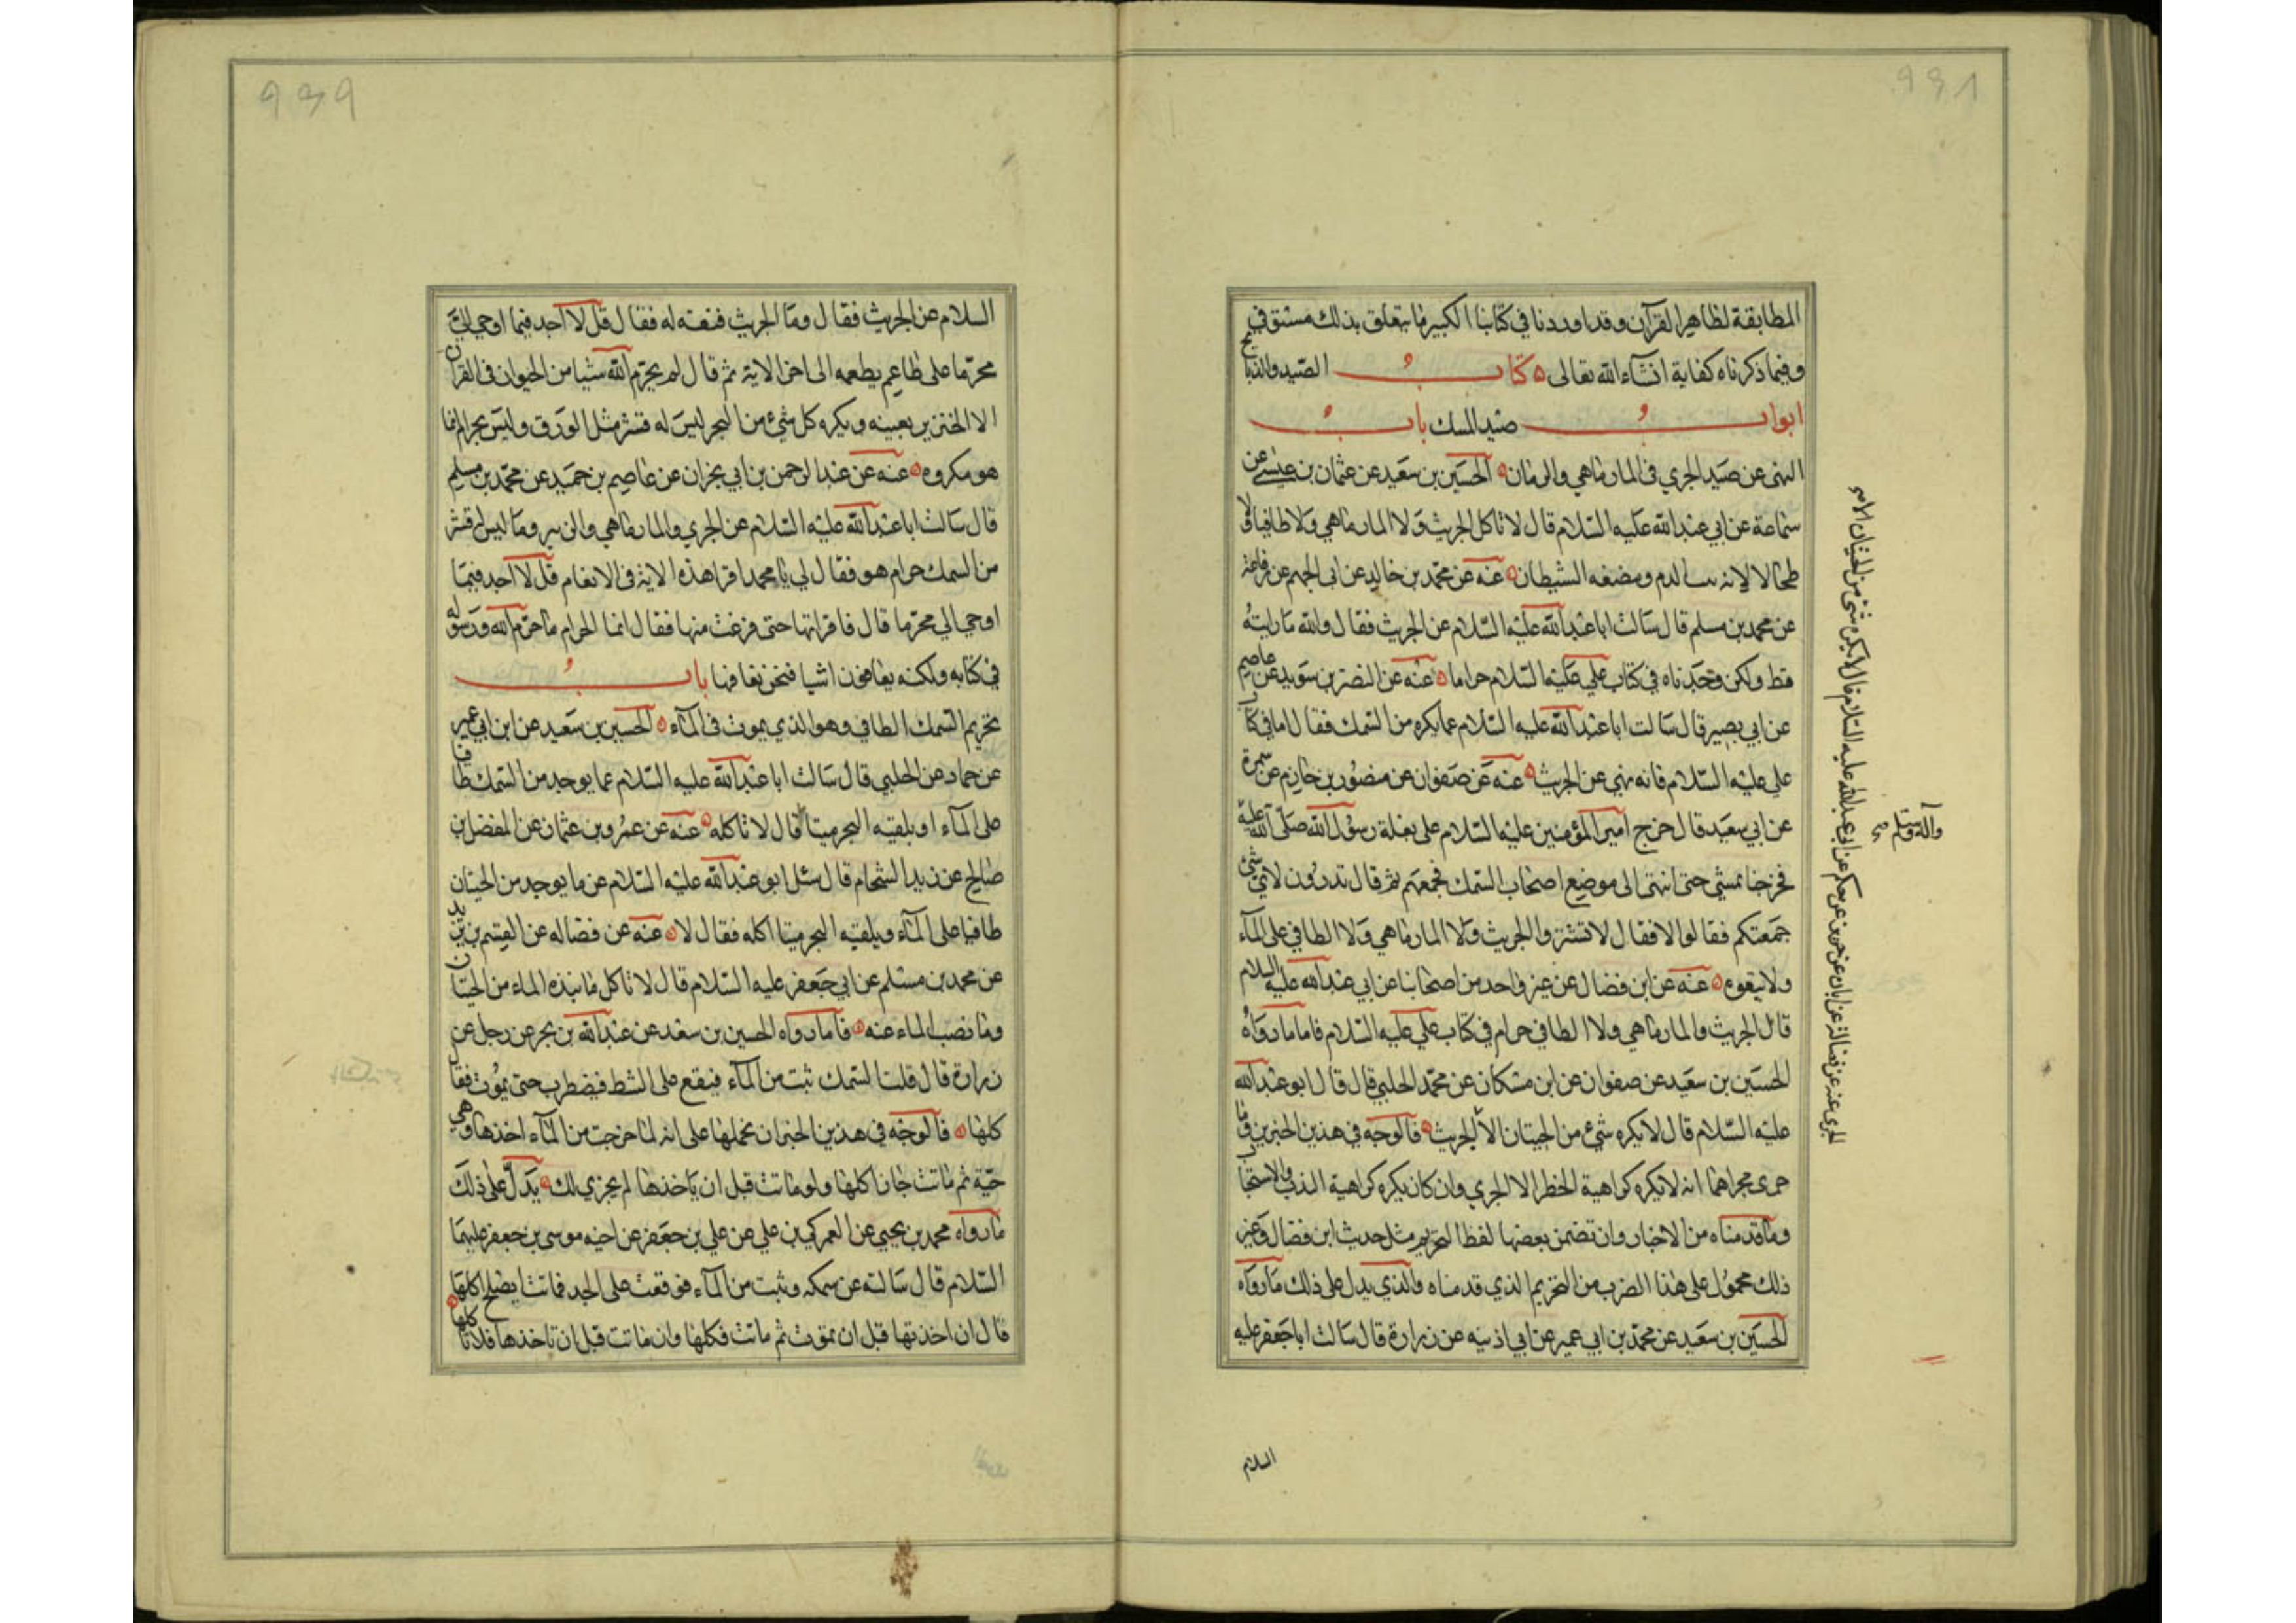 ٩٩٨
المطابقة لظاهر القرآن وقد اوردنا في كتابنا الكبير ما يتعلق بذلك مستوفي
وفيما ذكرناه كفاية انشاء الله تعالى كتاب الصيد والذبايح
ابواب صيد السمك باب
النهى عن صيد الجري في المارماهي والزمان الحسين بن سعيد عن عثمان بن عيسى عن
سماعة عن ابي عبد الله عليه السلام قال لا تاكل الجريث ولا المارماهي ولا طافيا ولا
طحالا لانه بيت الدم ومضغه الشيطان عنه عن محمد بن خالد عن ابى الجهم عن رفاعة
عن محمد بن مسلم قال سالت ابا عبد الله عليه السلام عن الجريث فقال والله ما رايته
قط ولكن وجدناه في كتاب علي عليه السلام حراما عنه عن النضر بن سويد عن عاصم
عن ابي بصير قال سالت ابا عبد الله عليه السلام عما يكره من السمك فقال اما في كتاب
علي عليه السلام فانه نهي عن الجريث عنه عن صفوان عن منصور بن حازم عن سمرة
عن ابي سعيد قال خرج امير المؤمنين عليه السلام على بغلة رسول الله صلى الله عليه
فخرجنا نمشي حتى انتهى الى موضع اصحاب السمك فجمعهم ثم قال تدرون لاي شيء
جمعتكم فقالوا لا فقال لا تشتروا الجريث ولا المارماهي ولا الطافي على الماء
ولا تبيعوه عنه عن ابن فضال عن غير واحد من اصحابنا عن ابي عبد الله عليه السلام
قال الجريث والمارماهي ولا الطافي حرام في كتاب علي عليه السلام فاما ما رواه
الحسين بن سعيد عن صفوان عن ابن مسكان عن محمد الحلبي قال قال ابو عبد الله
عليه السلام قال لا يكره شيء من الحيتان الا الجريث فالوجه في هذين الخبرين وما
جرى مجراهما انه لا يكره كراهية الحظر الا الجري وان كان يكره كراهية الندب والاستحباب
وما قدمناه من الاخبار وان تضمن بعضها لفظ التحريم مثل حديث ابن فضال وغير
ذلك محمول على هذا الضرب من التحريم الذي قدمناه والذي يدل على ذلك ما رواه
الحسين بن سعيد عن محمد بن ابي عمير عن ابي اذينه عن زرارة قال سالت ابا جعفر عليه
السلام
واله وسلم صح
الجري عنه عن فضالة عن ابان عن حريز عن حكم عن ابي عبد الله عليه السلام قال لا يكره شئ من الحيتان الا
٩٩٩
السلام عن الجريث فقال وما الجريث فنعته له فقال قل لا اجد فيما اوحي الي
محرما على طاعم يطعمه الى اخر الاية ثم قال لم يحرم الله شيا من الحيوان في القران
الا الخنزير بعينه ويكره كل شيء من البحر ليس له قشر مثل الورق وليس بحرام انما
هو مكروه عنه عن عبد الرحمن بن ابي نجران عن عاصم بن حميد عن محمد بن مسلم
قال سالت ابا عبد الله عليه السلام عن الجري والمارماهي والزمير وما ليس له قشر
من السمك حرام هو فقال لي يا محمد اقرا هذه الاية في الانعام قل لا اجد فيما
اوحي الي محرما قال فاقراتها حتى فرغت منها فقال انما الحرام ما حرم الله ورسوله
في كتابه ولكنه يعافون اشيا فنحن نعافها باب
تحريم السمك الطافي وهو الذي يموت في الماء الحسين بن سعيد عن ابن ابي عمير
عن حماد عن الحلبي قال سالت ابا عبد الله عليه السلام عما يوجد من السمك طافيا
على الماء او يلقيه البحر ميتا قال لا تاكله عنه عن عمرو بن عثمان عن المفضل بن
صالح عن زيد الشحام قال سئل ابو عبد الله عليه السلام عن ما يوجد من الحيتان
طافيا على الماء ويلقيه البحر ميتا اكله فقال لا عنه عن فضاله عن القسم بن بريد
عن محمد بن مسلم عن ابي جعفر عليه السلام قال لا تاكل ما نبذه الماء من الحيتان
وما نضب الماء عنه فاما رواه الحسين بن سعد عن عبد الله بن بحر عن رجل عن
زرارة قال قلت السمك ثبت من الماء فيقع على الشط فيضطرب حتى يموت فقال
كلها فالوجه في هذين الخبران نحملها على انه لما خرجت من الماء اخذها وهي
حية ثم ماتت جاز اكلها ولو ماتت قبل ان ياخذها لم يجزي لك يدل على ذلك
ما رواه محمد بن يحيى عن العمركي بن علي عن علي بن جعفر عن اخيه موسى بن جعفر عليهما
السلام قال سالته عن سمكه وثبت من الماء فوقعت على الجد فماتت ايصلح اكلها
قال ان اخذتها قبل ان تموت ثم ماتت فكلها وان ماتت قبل ان تاخذها فلا تاكلها